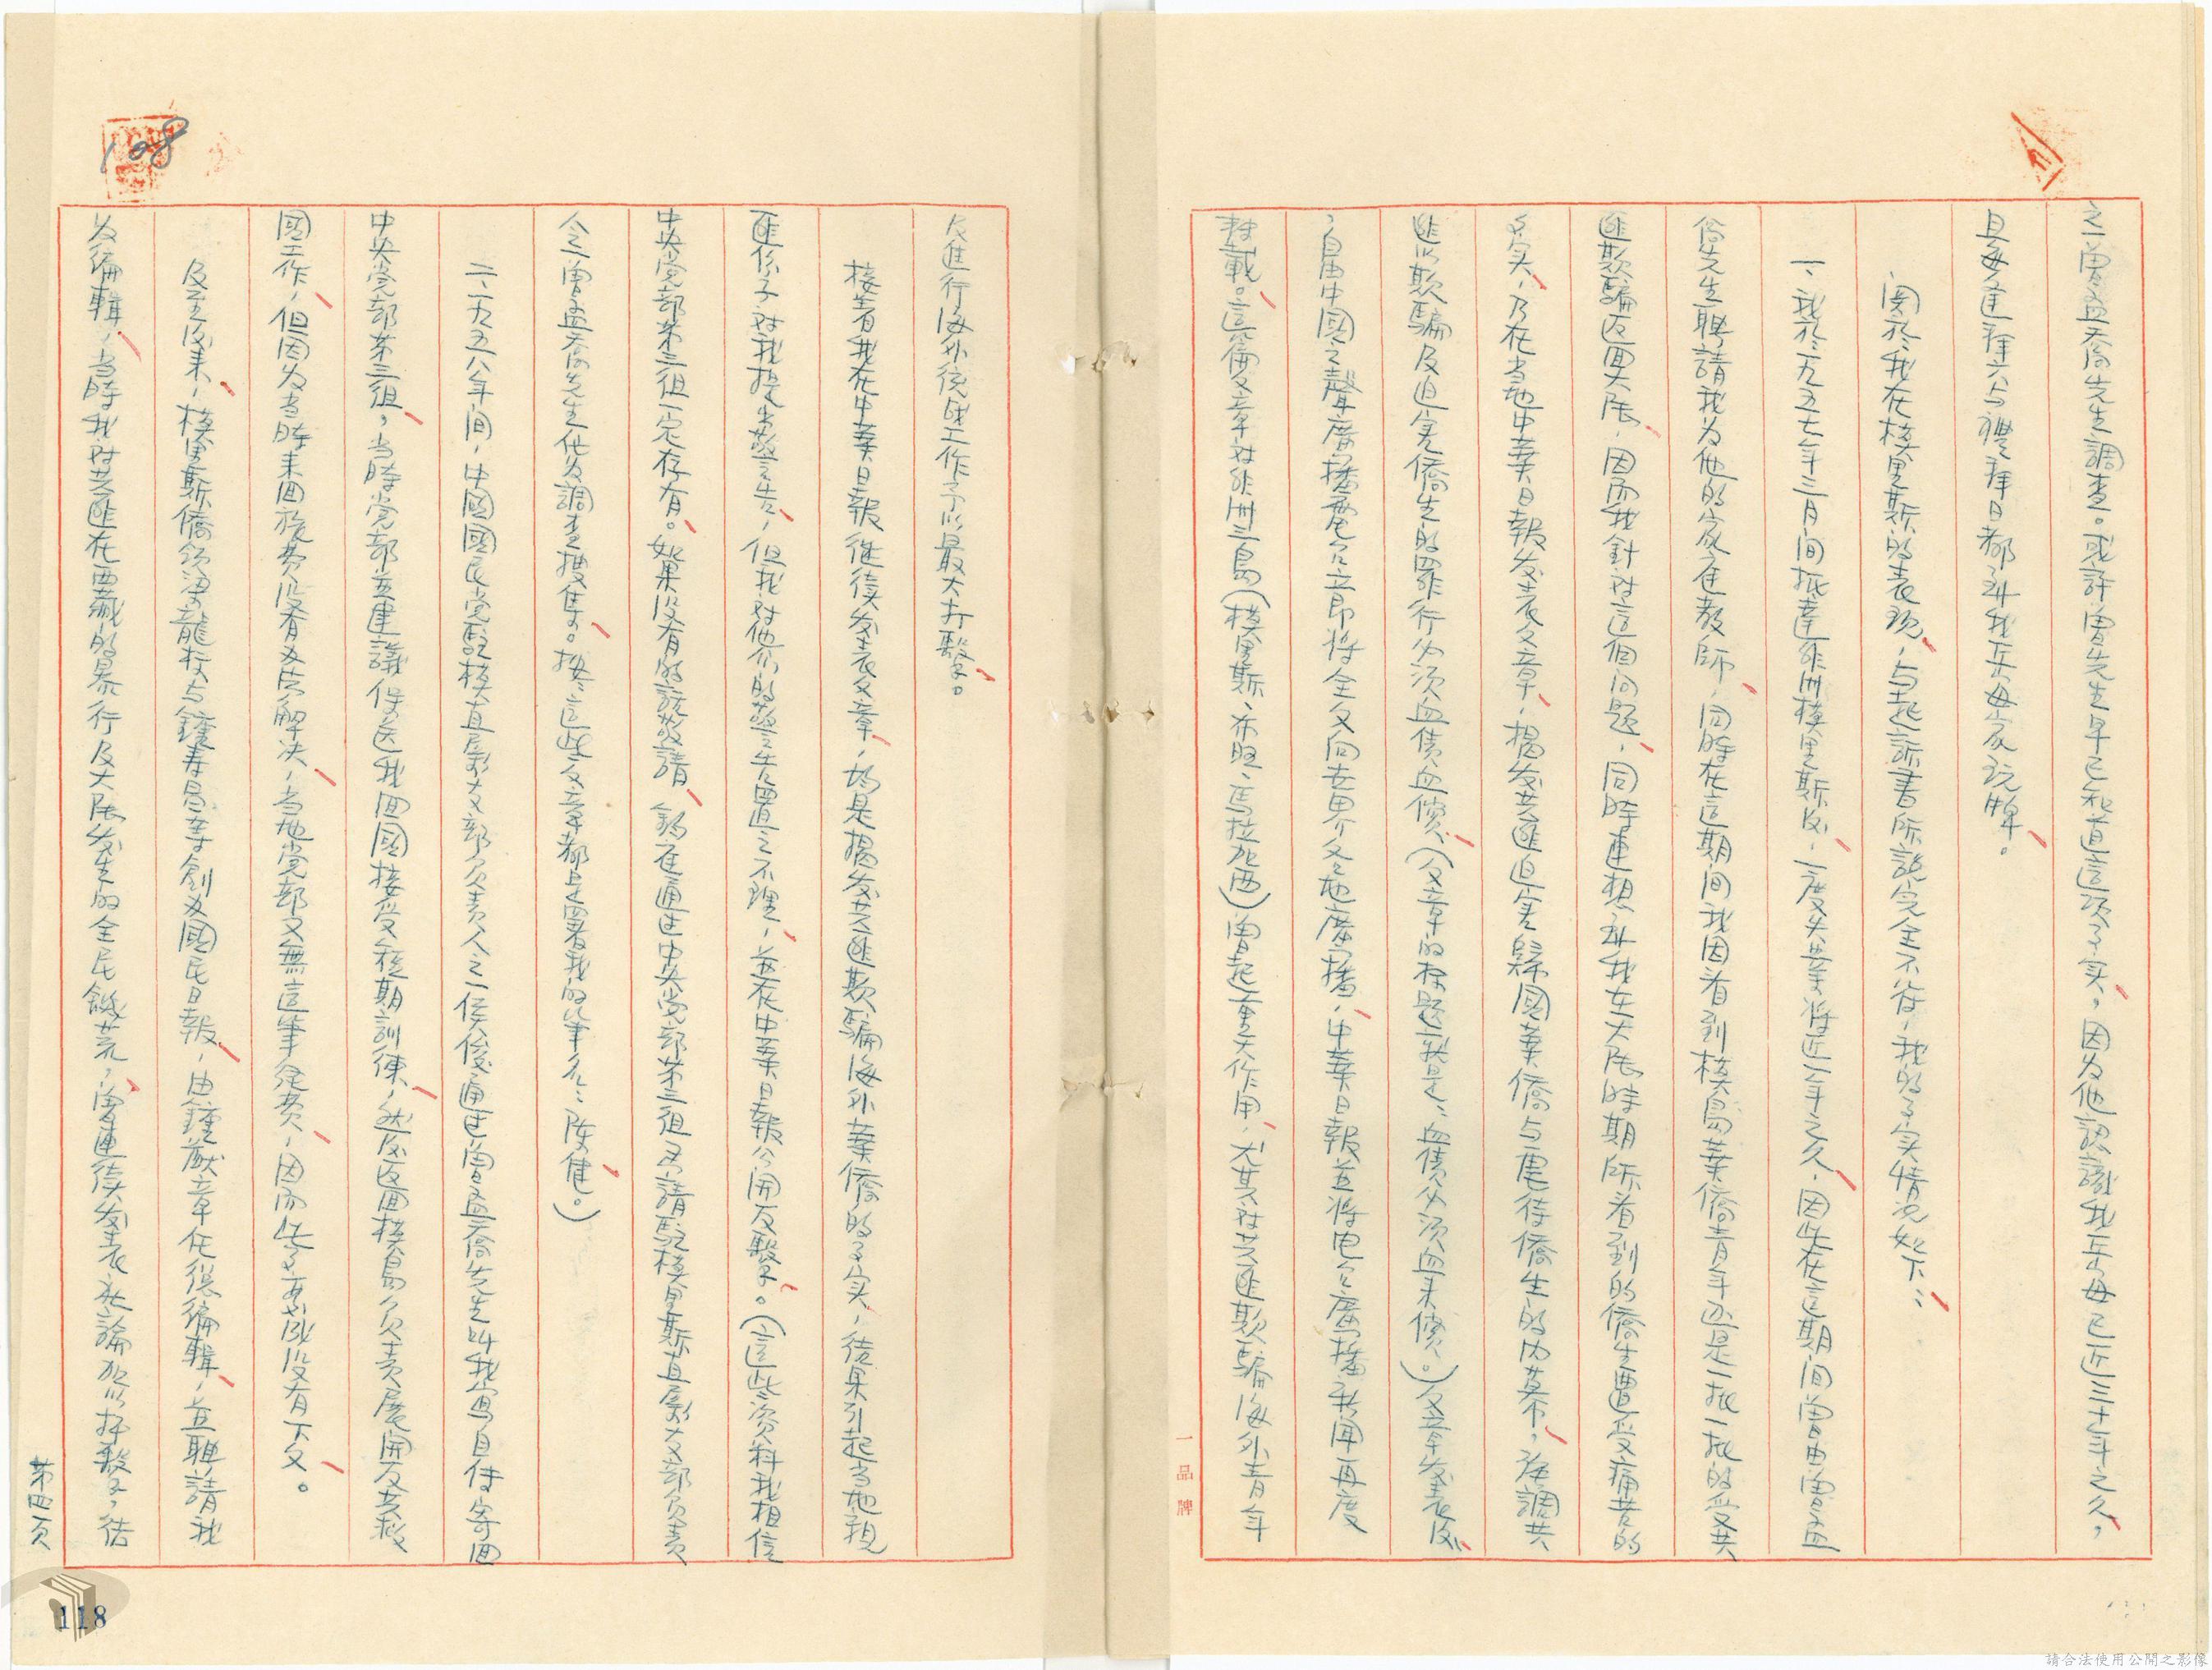 之一曾孟喬先生調查。或許曾先生早已知道這項事实，因为他認識我岳母已近三十年之久，
且每逢拜六与禮拜日都到我岳母家玩牌。
關於我在模里斯的表現，与起訴書所說完全不符，我的事实情况如下：
一、我於一九五七年三月間抵達非洲模里斯後，一度失業将近一年之久，因此在這期間曾由曾孟
喬先生聘請我为他的家庭教師，同時在這期間我因看到模島華僑青年还是一批一批的受共
匪欺騙返回大陸，因而我針対這個问题，同時連想到我在大陸時期所看到的僑生遭受痛苦的
事实，乃在当地中華日報发表文章，揭发共匪迫害歸國華僑与虐待僑生的内幕，強調共
匪以欺騙及迫害僑生的罪行必須血債血償，（文章的标题就是：血債必須血来償。）文章发表後
，自由中國之聲廣播電台立即将全文向世界各地廣播，中華日報並将电台廣播新闻再度
轉載。這篇文章対非洲三島（模里斯、布旺、馬拉加西）曾起重大作用，尤其対共匪欺騙海外青年
及進行海外統战工作予以最大打擊。
接着我在中華日報继续发表文章，均是揭发共匪欺騙海外華僑的事实，结果引起当地親
匪份子対我提出警告，但我対他們的警告置之不理，並在中華日報公開反擊。（這些資料我相信
中央党部第三組一定存有。如果没有的話敬請 鈞座通过中央党部第三組再請駐模里斯直屬支部负责
人之一曾孟喬先生代为調查搜集。按：這些文章都是署我的笔名：陈健。）
二、一九五八年间，中國國民党駐模直屬支部负责人之一侯俊通过曾孟喬先生叫我寫自傳寄回
中央党部第三組，当時党部並建議保送我回國接受短期訓練，然後返回模島负责展開反共救
國工作，但因为当時来回旅费没有办法解决，当地党部又無這筆经费，因而此事就没有下文。
及至後来，模里斯僑領李龍杉与鐘寿昌等創办國民日報，由鐘献章任総編輯，並聘請我
为編輯，当時我対共匪在西藏的暴行及大陸发生的全民饑荒，曾連续发表社論加以抨擊，结
第四页
108
118
一品牌
請合法使用公開之影像